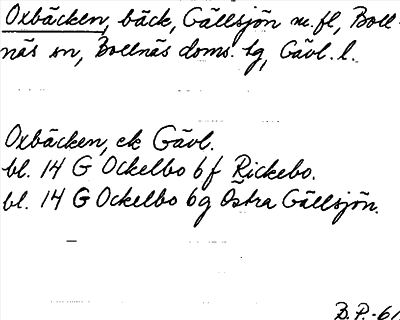 Oxbäcken, bäck, Gällsjön m.fl, Boll-
näs sn, Bollnäs doms. lg, Gävl. l.
Oxbäcken, ek Gävl.
bl. 14 G Ockelbo 6f Rickebo.
bl. 14 G Ockelbo 6g Östra Gällsjön.
B.P.-61